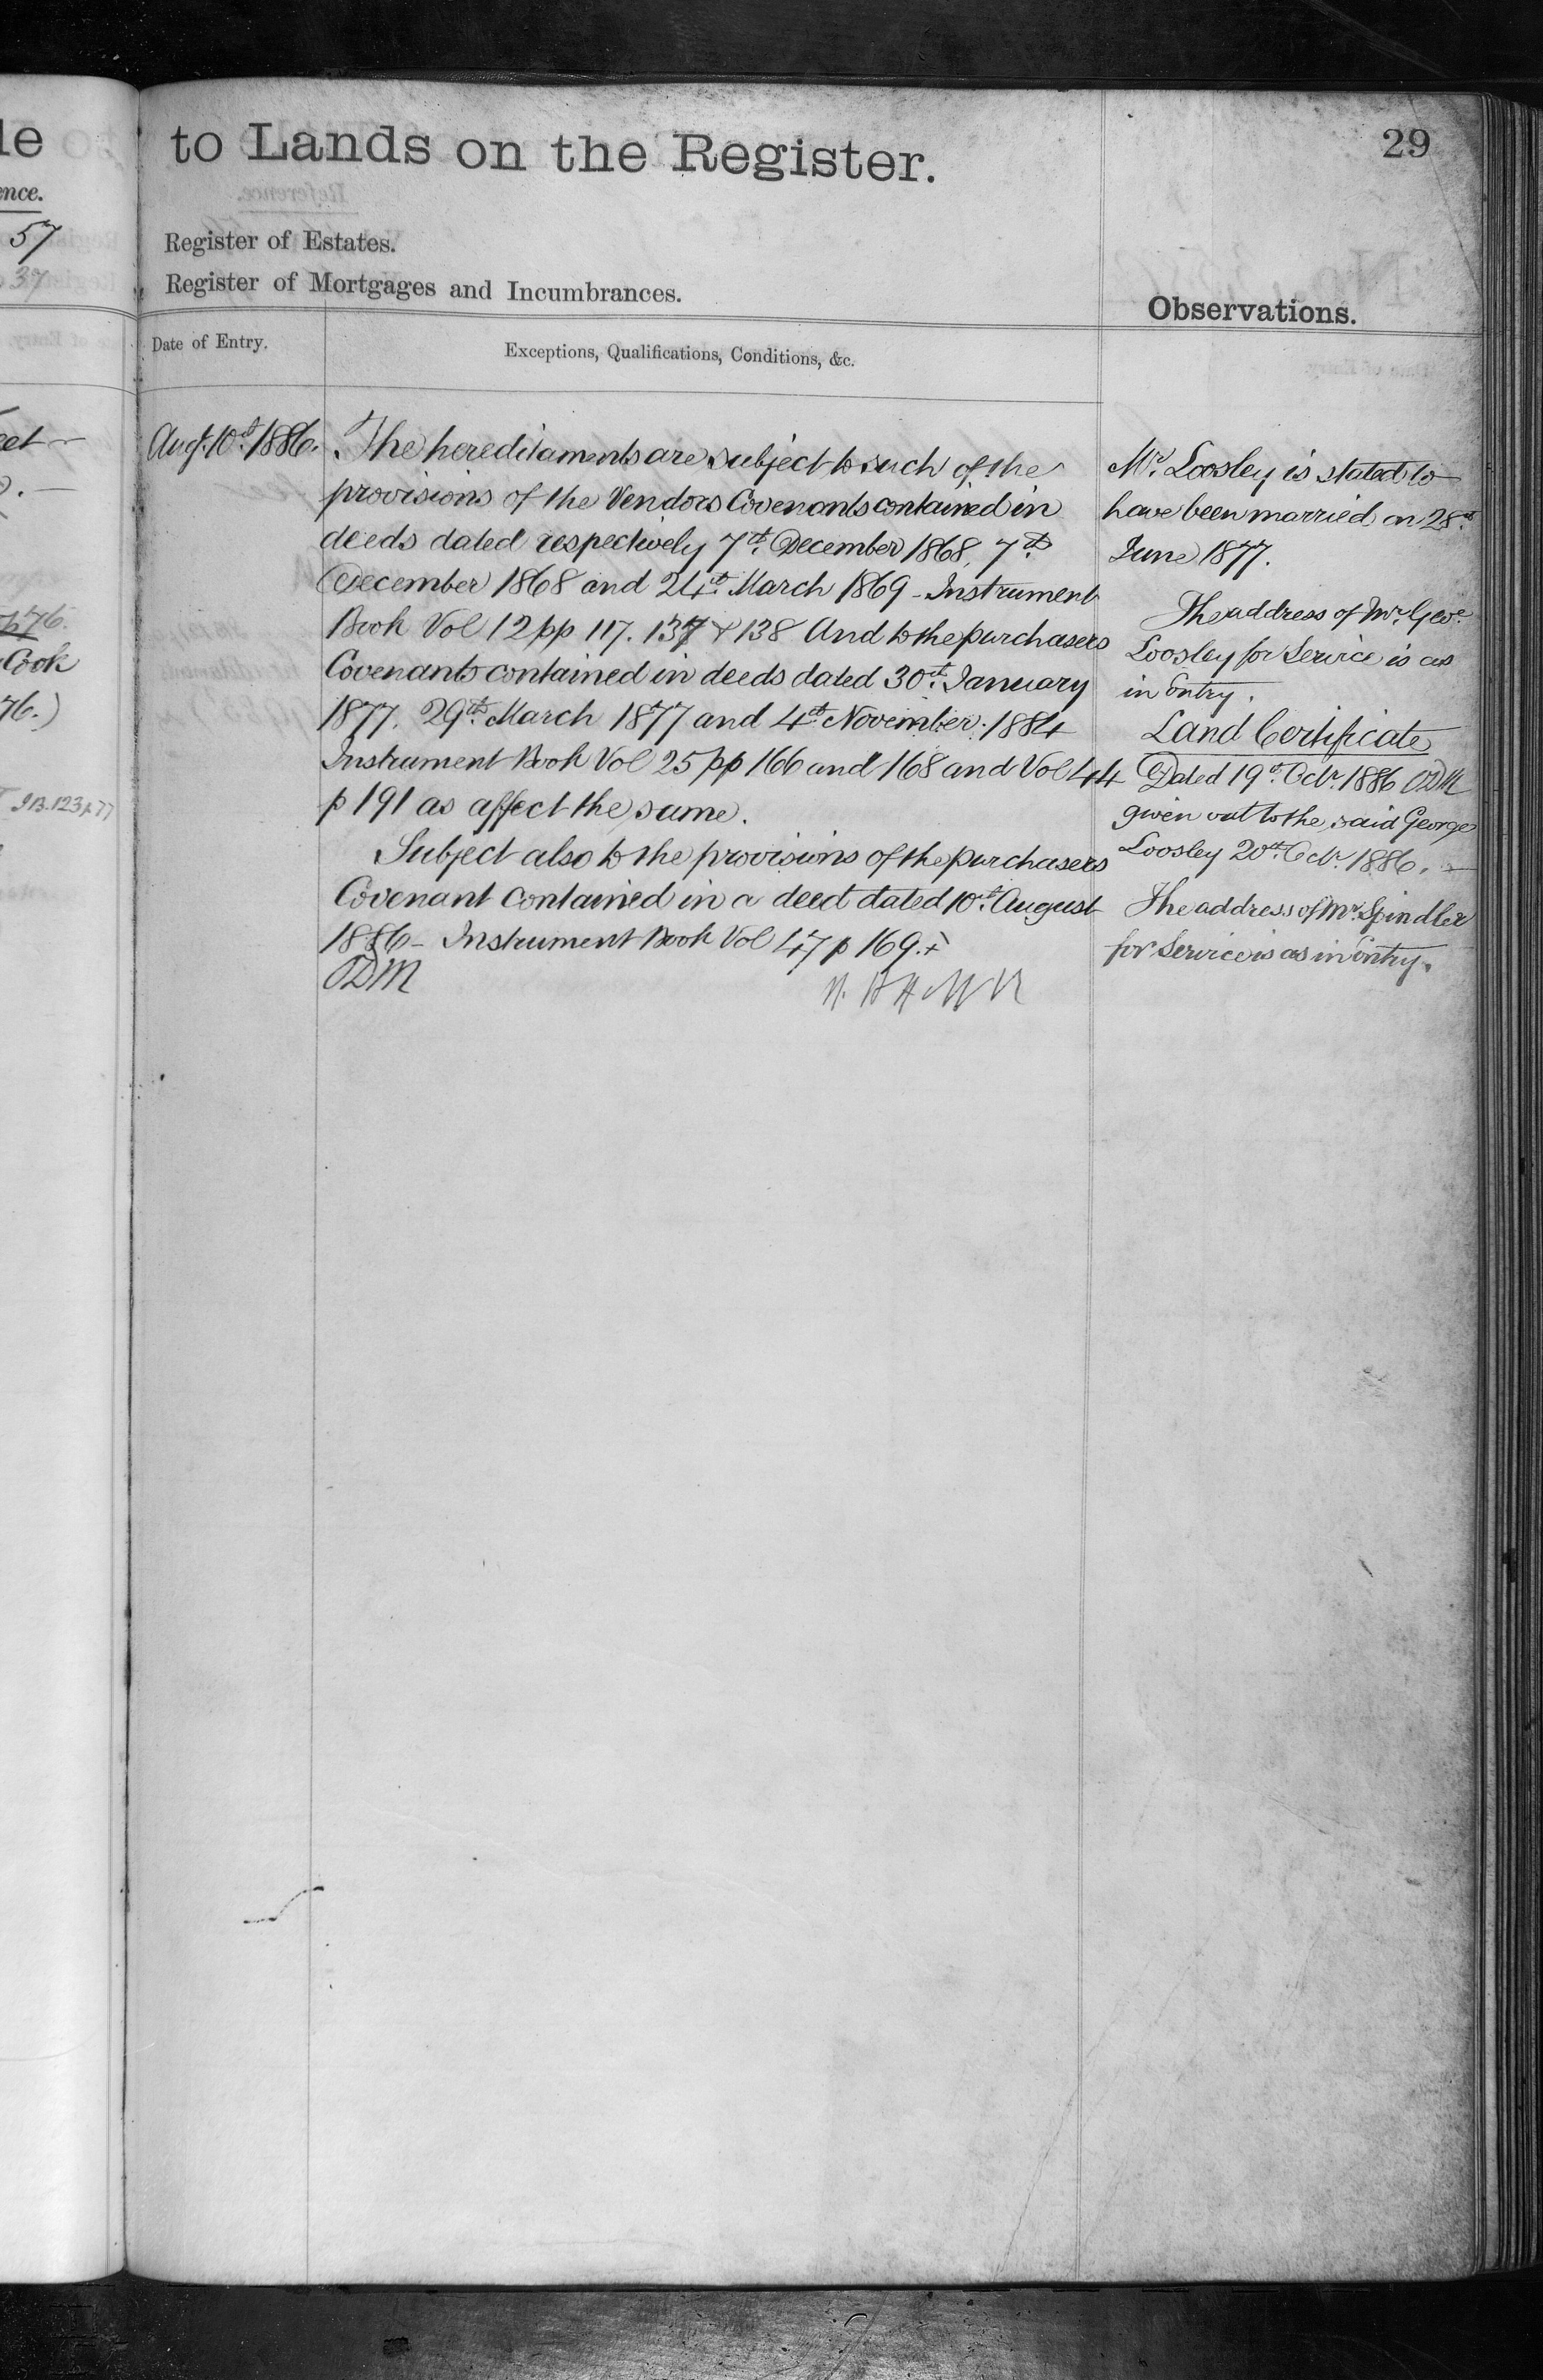 le
ence.
57
37
eet
76.
Cook
76.)
I B. 123 p 77
to Lands on the Register.
29
Register of Estates.
Register of Mortgages and Incumbrances.
Observations.
Date of Entry.
Exceptions, Qualifications, Conditions, &c.
Augt. 10th 1886.
The hereditaments are subject to such of the
provisions of the Vendors Covenants contained in
deeds dated respectively 7th December 1868, 7th
December 1868 and 24th March 1869 - Instrument
Book Vol 12 pp 117. 137 & 138 And to the purchasers
Covenants contained in deeds dated 30th January
1877. 29th March 1877 and 4th November 1884
Instrument Book Vol 25 pp 166 and 168 and Vol 44
p 191 as affect the same.
Subject also to the provisions of the purchasers
Covenant contained in a deed dated 10th August
1886 - Instrument Book Vol 47 p 169. +
ODM
Mr. Loosley is stated to
have been married on 28th
June 1877.
The address of Mr. Geo.
Loosley for Service is as
in Entry.
Land Certificate
Dated 19th Octr. 1886 ODM
given out to the said George
Loosley 20th Octr. 1886.
The address of Mr. Spindler
for Service is as in Entry.